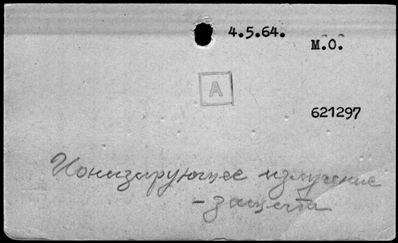 4.5.64.
М.О.
А
621297
Ионизирующее излучение
- защита